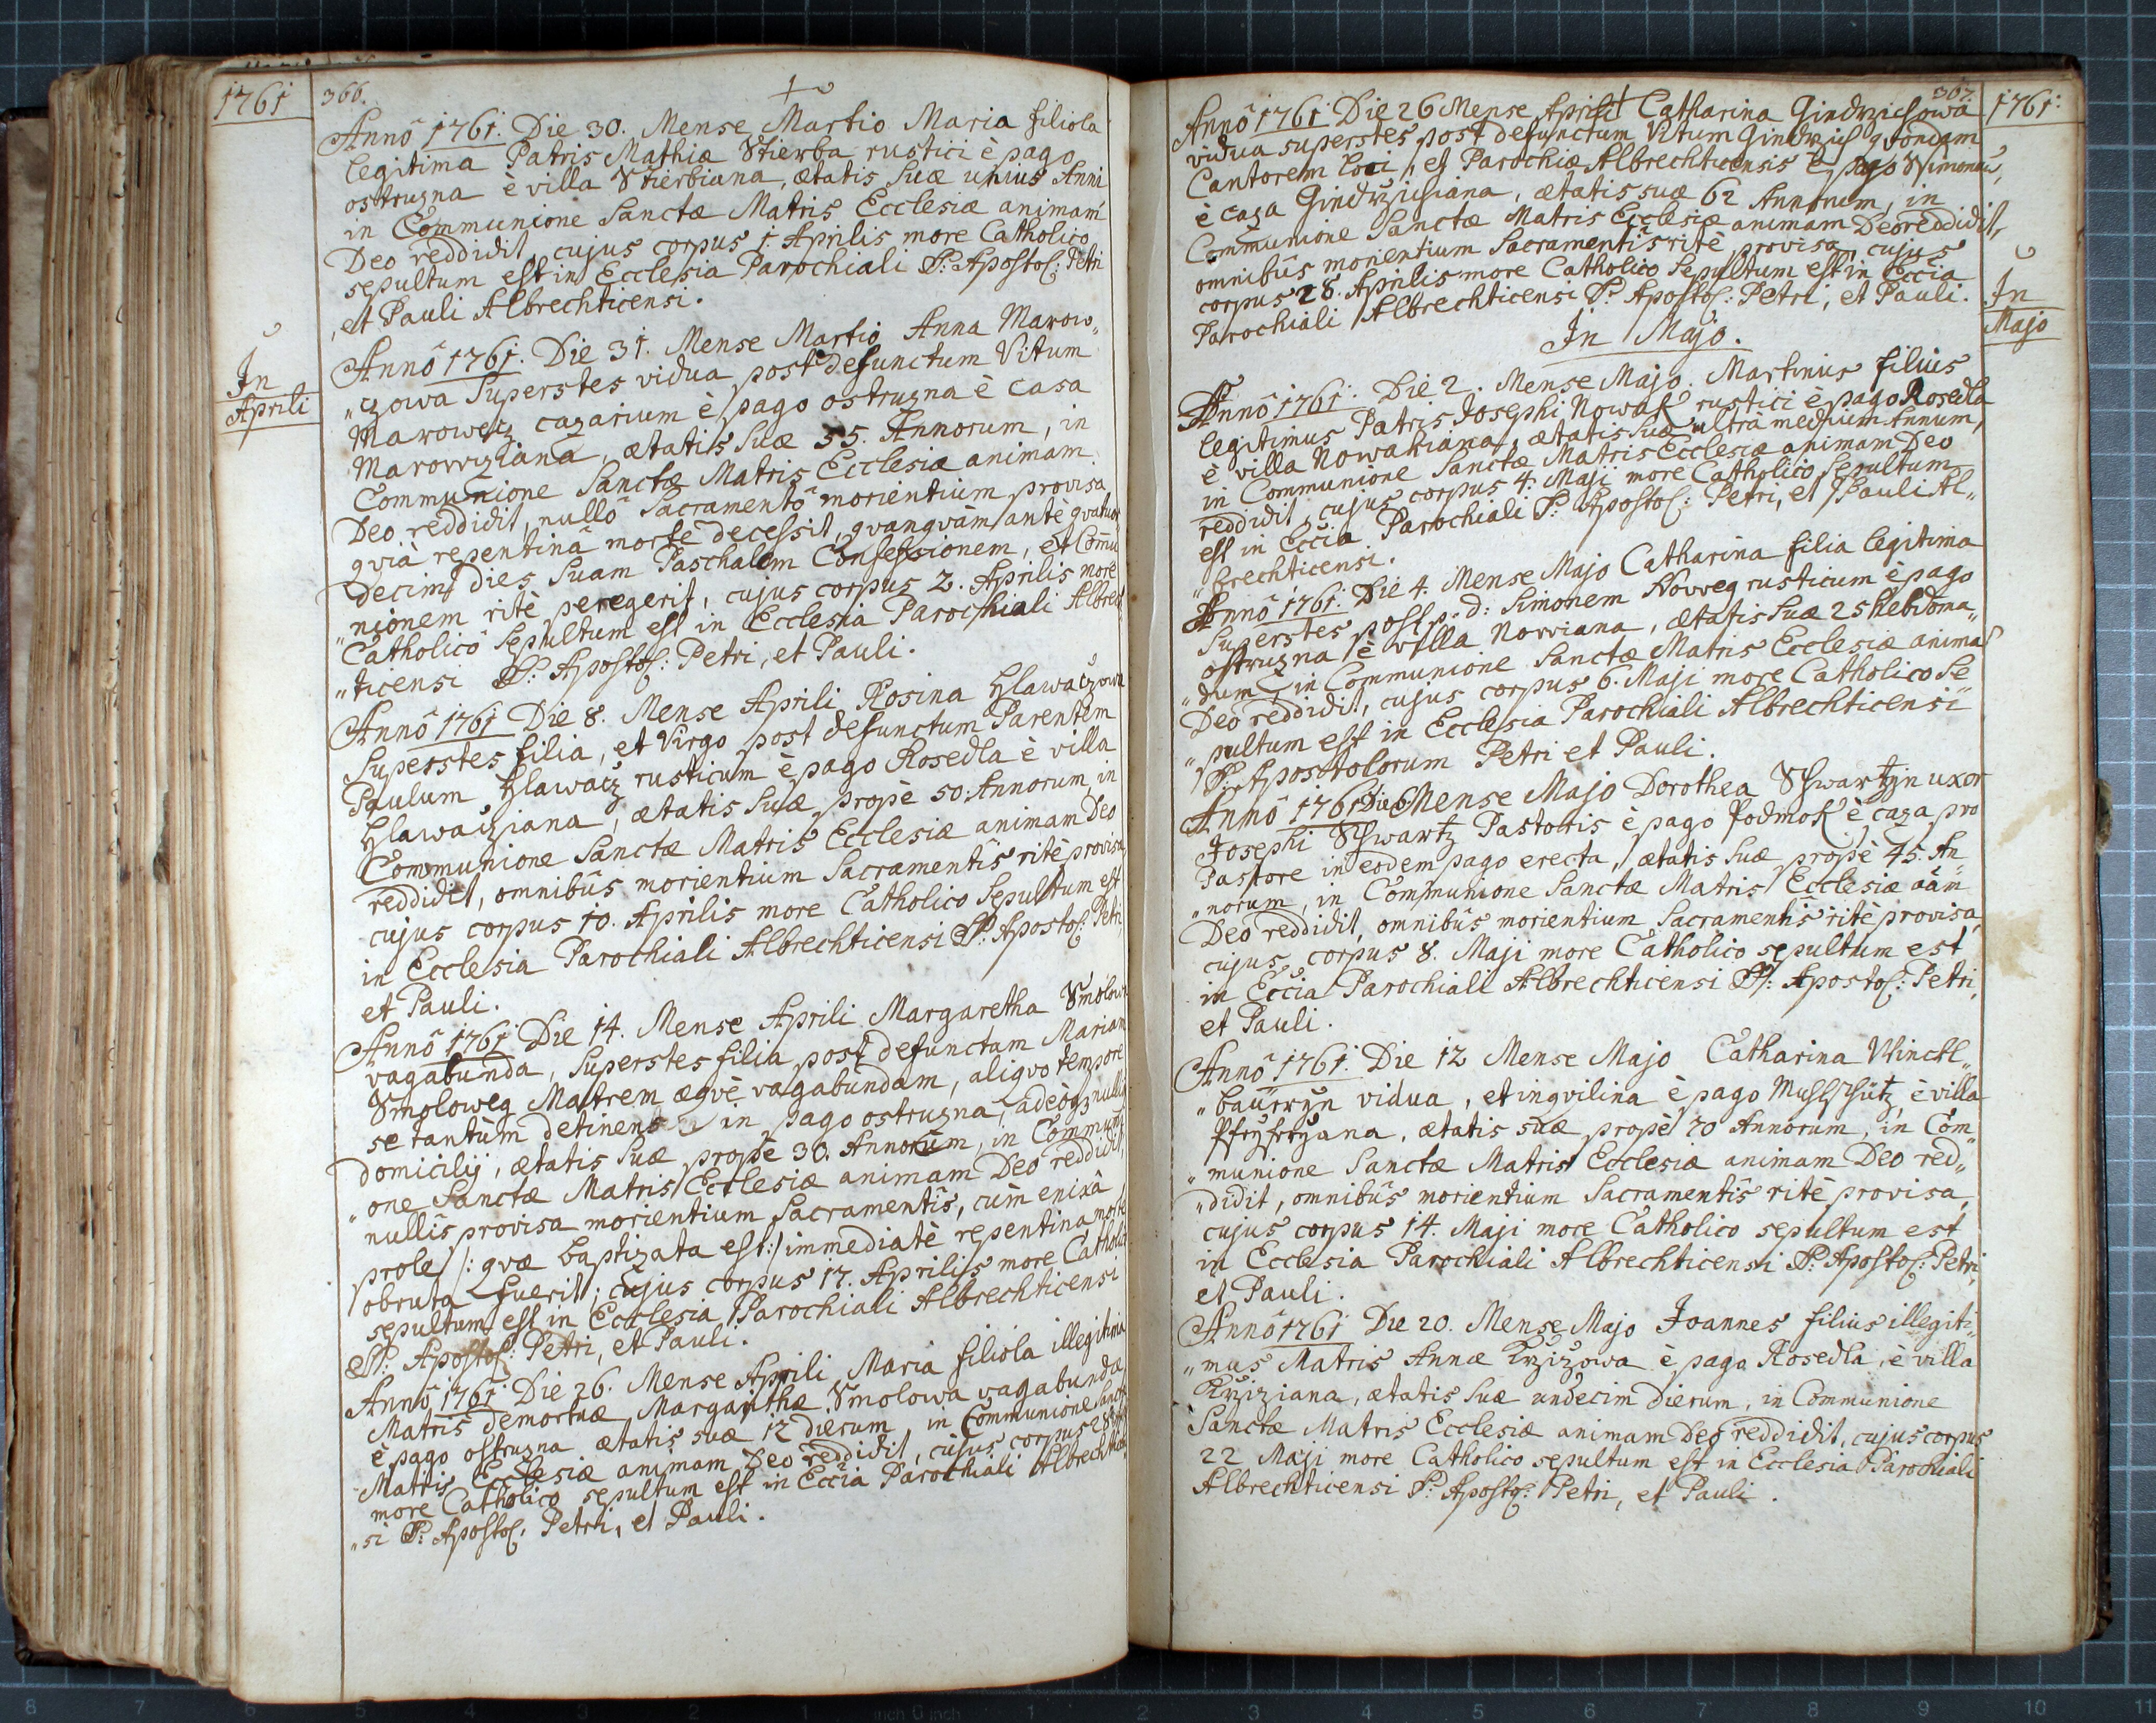 1761
366.
Annô 1761. Die 30. Mense Martio Maria filiola
legitima Patris Mathiæ Stierba rustici è pago
ostruzna è villa Stierbiana, ætatis suæ unius Anni
in Communione Sanctæ Matris Ecclesiæ animam
Deo reddidit, cujus corpus 1. Aprilis more Catholico
sepultum est in Ecclesia Parochiali S: Apostol: Petri
, et Pauli Albrechticensi.
In
Aprili
Annô 1761. Die 31. Mense Martio Anna Marow„
„czowa Superstes vidua post defunctum Vitum
Marowecz cazarium è pago ostruzna è casa
Marowcziana, ætatis suæ 55. Annorum, in
Communione Sanctæ Matris Ecclesiæ animam
Deo reddidit, nullô Sacramentô morientium provisa
qvià repentinâ morte decessit, qvanqvàm antè qvatuor
decim dies suam Paschalem Confessionem, et Commu
„nionem ritè peregerit, cujus corpus 2. Aprilis more
Catholicô Sepultum est in Ecclesia Parochiali Albrech
„ticensi S: Apostol: Petri, et Pauli.
Annô 1761 Die 8. Mense Aprili Rosina Hlawaczowa
Superstes filia, et Virgo post defunctum Parentem
Paulum Hlawacz rusticum è pago Rosedla è villa
Hlawacziana, ætatis suæ propè 50. Annorum, in
Communione Sanctæ Matris Ecclesiæ animam Deo
reddidit, omnibûs morientium Sacramentîs ritè provisa
cujus corpus 10. Aprilis more Catholico Sepultum est
in Ecclesia Parochiali Albrechticensi S: Apostol: Petri,
et Pauli.
Annô 1761 Die 14. Mense Aprili Margaretha Smolowa
vagabunda, Superstes filia post defunctam Mariam
Smoloweg Matrem æqvè vagabundam, aliqvo tempore
se tantùm detinens in pago ostruzna, adeòq; nullius
domicilij, ætatis suæ propè 30. Annorum, in Communi
„one Sanctæ Matris Ecclesiæ animam Deo reddidit,
nullîs provisa morientium Sacramentîs, cùm enixâ
prole /: qvæ baptizata est:/ immediatè repentina morte
obruta fuerit; cujus corpus 17. Aprilis more Catholico
sepultum est in Ecclesia Parochiali Albrechticensi
S: Apostol: Petri, et Pauli.
Annô 1761 Die 26. Mense Aprili Maria filiola illegitima
Matris demortuæ Margarithæ Smolowa vagabundæ
è pago ostruzna ætatis suæ 12 dierum in Communione Sanctæ
Matris Ecclesiæ animam Deo reddidit, cujus corpus
more Catholico sepultum est in Eccia Parochiali Albrechticen
„si S: Apostol: Petri, et Pauli.
367.
1761.
Annô 1761 Die 26 Mense Aprili Catharina Gindrzichowa
vidua superstes post defunctum Vitum Gindrzich qvondam
Cantorem loci, et Parochiæ Albrechticensis è pago
è caza Gindrzichiana, ætatis suæ 62 Annorum, in
Communione Sanctæ Matris Ecclesiæ animam Deo reddidit,
omnibûs morientium Sacramentîs ritè provisa, cujus
corpus 28. Aprilis more Catholico Sepultum est in Eccia
Parochiali Albrechticensi S: Apostol: Petri, et Pauli.
In
Majo
In Majo.
Annô 1761. Die 2. Mense Majo. Martinus filius
legitimus Patris Josephi Nowak rustici è pago Rosedla
è villa Nowakiana, ætatis suæ ultrà medium Annum,
in Communione Sanctæ Matris Ecclesiæ animam Deo
reddidit, cujus corpus 4. Maji more Catholico Sepultum
est in Eccia Parochiali S: Apostol: Petri, et Pauli Al„
„brechticensi.
Annô 1761. Die 4. Mense Majo Catharina filia legitima
Superstes post p: d: Simonem Noweg rusticum è pago
ostruzna è villa Nowiana, ætatis suæ 25 hebdoma„
„dum in Communione Sanctæ Matris Ecclesiæ anima
Deo reddidit, cujus corpus 6. Maji more Catholico Se
„pultum est in Ecclesia Parochiali Albrechticensi
S: Apostolorum Petri et Pauli.
Annô 1761 Die 6. Mense Majo Dorothea Schwartzin uxor
Josephi Schwartz Pastoris è pago Podmok è caza pro
Pastore in eodem pago erecta, ætatis suæ propè 45. An
„norum, in Communione Sanctæ Matris Ecclesiæ aâm
Deo reddidit, omnibûs morientium Sacramentîs ritè provisa,
cujus corpus 8. Maji more Catholico sepultum est
in Eccia Parochiali Albrechticensi S: Apostol: Petri,
et Pauli.
Annô 1761. Die 12 Mense Majo Catharina Winckl„
„bauerin vidua, et inqvilina è pago Muhlschütz, è villa
ætatis suæ propè 70 Annorum, in Com
„munione Sanctæ Matris Ecclesiæ animam Deo red„
„didit, omnibûs morientium Sacramentîs ritè provisa,
cujus corpus 14. Maji more Catholico sepultum est
in Ecclesia Parochiali Albrechticensi S: Apostol: Petri,
et Pauli.
Annô 1761 Die 20. Mense Majo Joannes filius illegiti„
„mus Matris Annæ Krzizowa è pago Rosedla, è villa
Krziziana, ætatis suæ undecim dierum, in Communione
Sanctæ Matris Ecclesiæ animam Deo reddidit, cujus corpus
22 Maji more Catholico sepultum est in Ecclesia Parochiali
Albrechticensi S: Apostol: Petri, et Pauli.